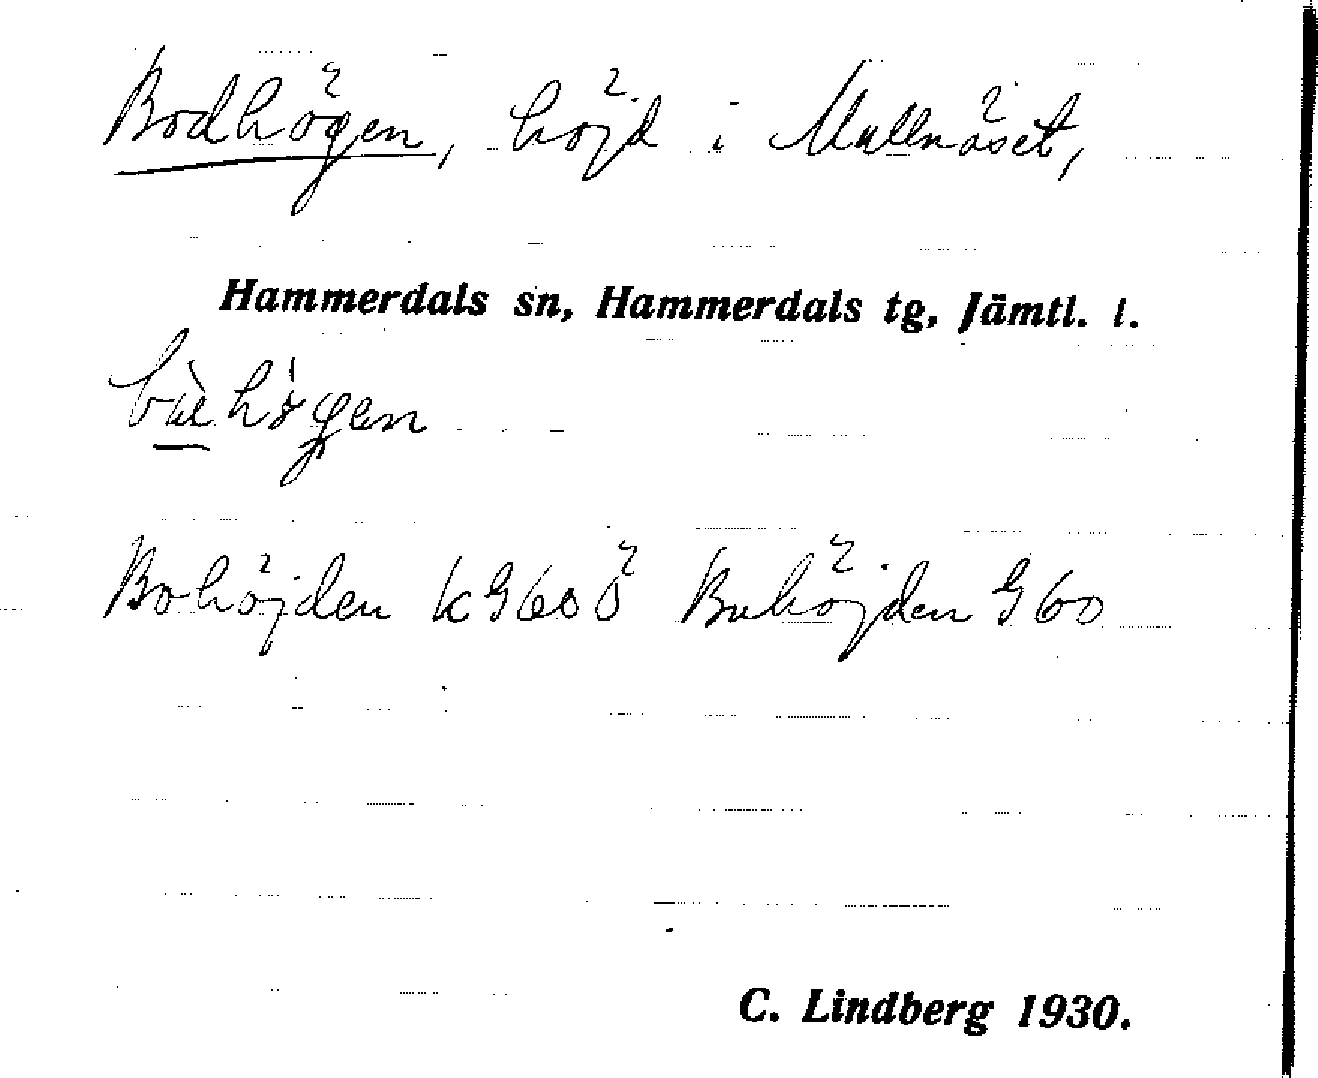 Bodhögen, höjd i Mullnäset,
Hammerdals sn, Hammerdals tg, Jämtl. l.
Bohöjden k G60 Ö Buhöjden G60
C. Lindberg 1930.